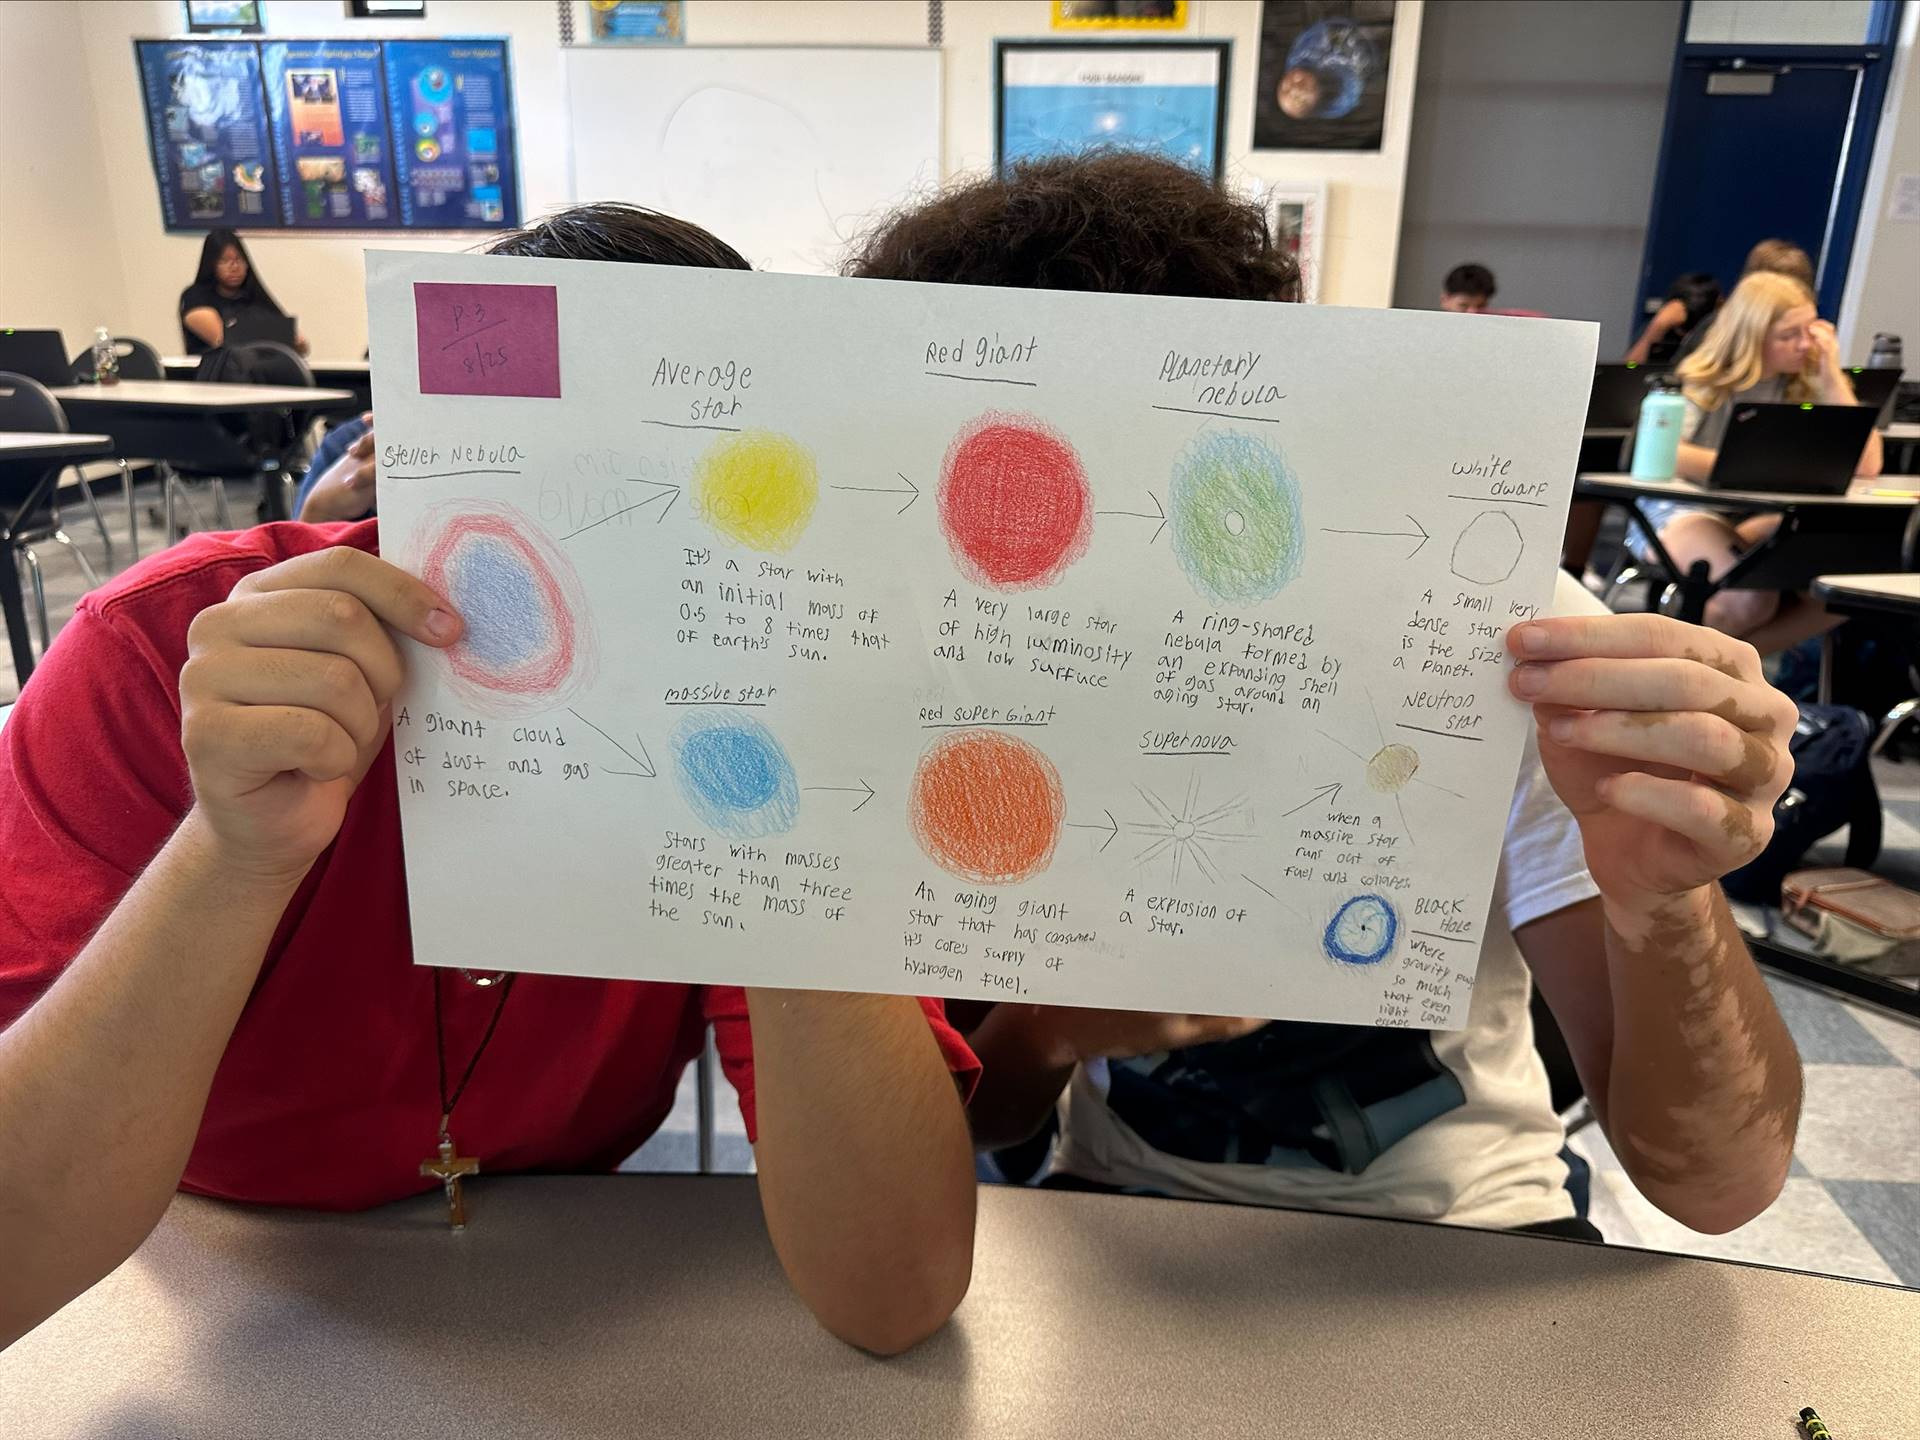 P.3
8/25
Steller Nebula
A giant cloud
of dust and gas
in space.
Average
star
It's a star with
an initial mass of
0.5 to 8 times that
of earth's sun.
Red giant
A very large star
of high luminosity
and low surface
Planetary
nebula
A ring-shaped
nebula formed by
an expanding shell
of gas around an
aging star.
white
dwarf
A small very
dense star
is the size
a planet.
massive star
Stars with masses
greater than three
times the mass of
the sun.
Red super Giant
An aging giant
star that has consumed
it's core's supply of
hydrogen fuel.
supernova
A explosion of
a star.
Neutron
star
when a
massive star
runs out of
fuel and collapes.
BLACK
HOLE
where
gravity pulls
so much
that even
light cant
escape